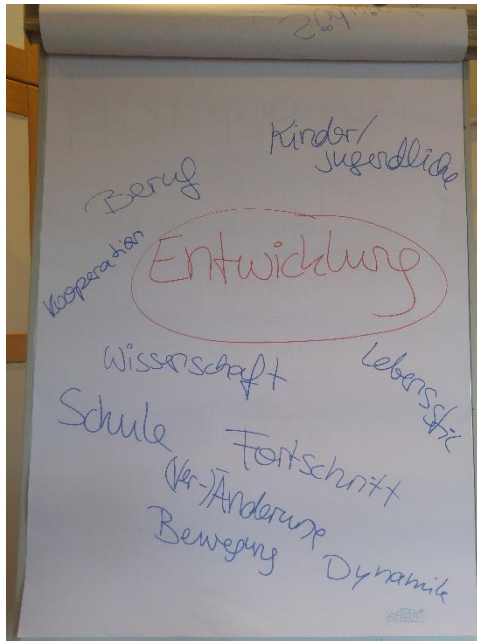 Kinder/
jugendliche
Beruf
Kooperation
Entwicklung
Wissenschaft
Lebensstil
Schule
Fortschritt
(Ver-)Änderung
Bewegung
Dynamik